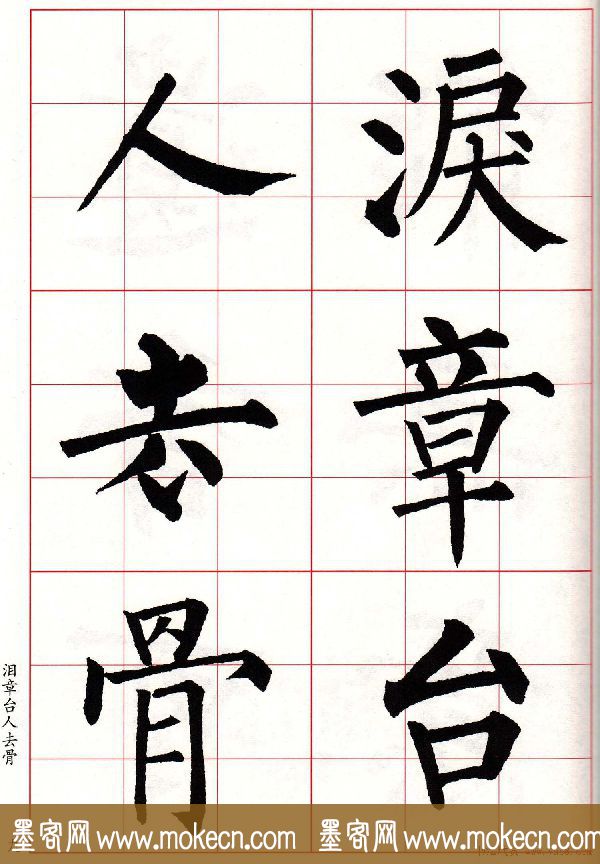 淚章台
人去骨
泪章台人去骨
墨客网www.mokecn.com 墨客网www.mokecn.com